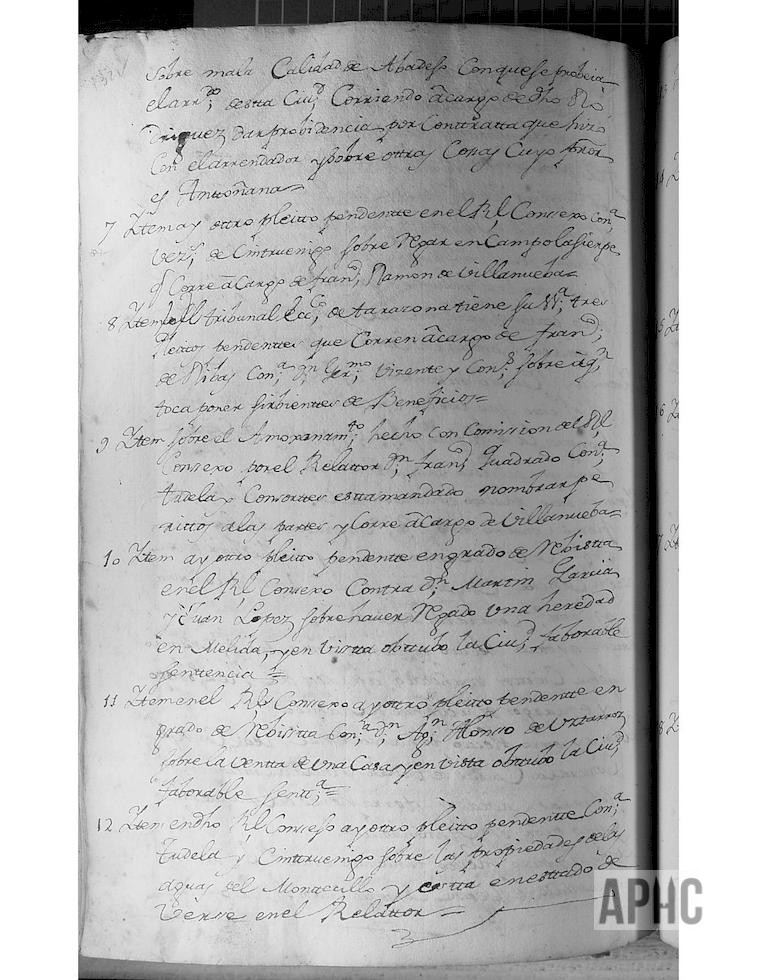 Sobre mala Calidad de Abadesso Conque se probeia
el arr.do; de estta Ciu.d Corriendo â cargo de dho Ro
driguez dar probidencia por Conttratta que hizo
Con el arrendador y sobre ottras Cosas Cuyo
es Anttoñana=
7 Ytem ay ottro pleitto pendentte en el Rl Consexo Con.a
Vez.s de Cinttruenigo sobre Regar en Campo la sierpe
q Corre â Cargo de fran.co Ramon de Villanueba=
8 Ytem el tribunal Ecc.co de tarazona tiene su tres
Pleitos pendentes que Corren â cargo de fran.co
de Ribas Con.a D.n Ger.mo Vizente y Con.s sobre
toca poner sirbienttes de Beneficios=
9 Ytem sobre el Amoxonam.to; hecho con Comission del Rl
Consexo por el Relattor D.n fran.co Quadrado Con.a
tudela y Consorttes estta mandado nombrar pe
rittos a las parttes y Corre â Cargo de Villanueba=
10 Ytem ay ottro pleitto pendentte en grado de Rebistta
en el Rl Consexo Contra D.n Martin Garcia
y Juan Lopez sobre haver Regado una heredad
en Melida, y en Vistta obttubo la Ciu.d faborable
senttencia=
11 Ytem en el Rl Consexo ay ottro pleitto pendentte en
grado de Rebistta Con.a D.n Ag.n Alonso de
sobre la Ventta de Una Casa y en Vistta obttubo la Ciu.d
faborable sentt.a=
12 Ytem en dho Rl Consejo ay ottro pleitto pendentte Con.a
Tudela y Cinttruenigo sobre las propiedades de las
aguas del Monacillo y estta en estado de
Verse en el Relattor=
APHC